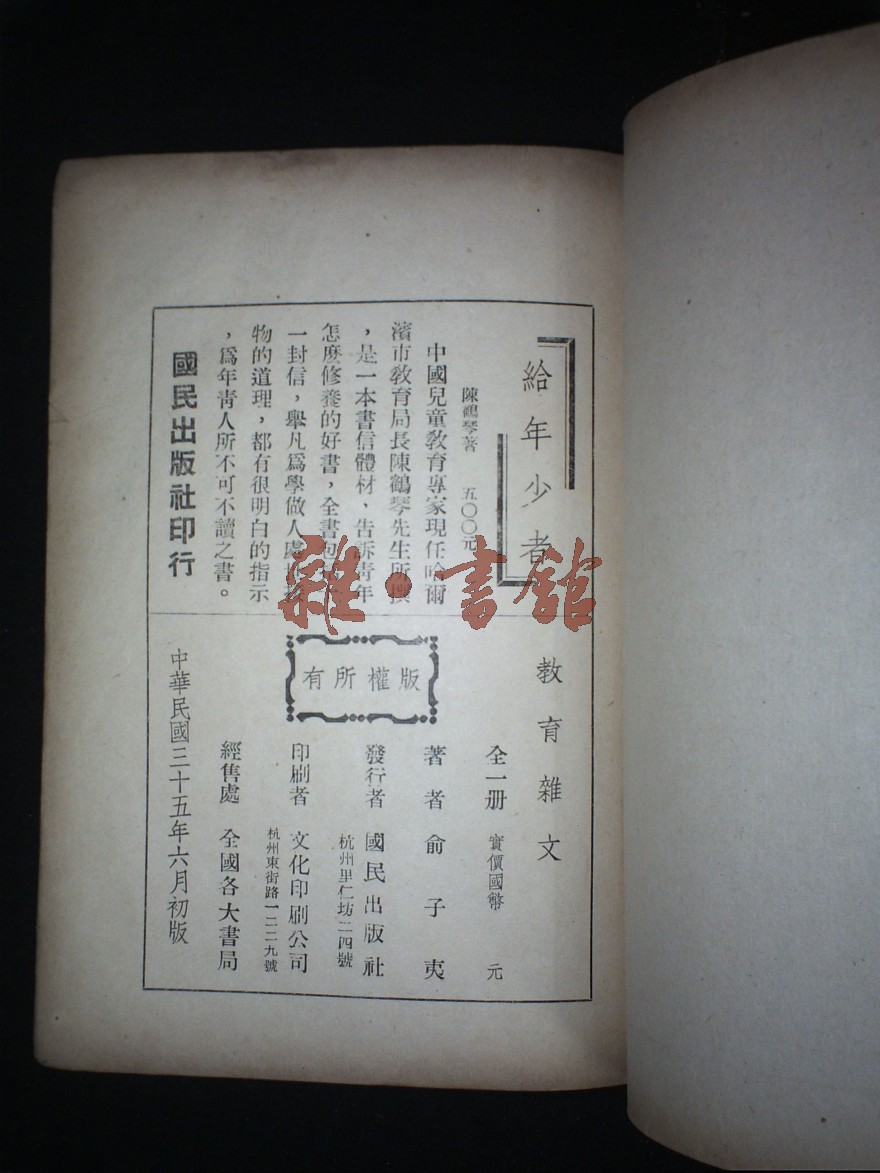 給年少者
陳鶴琴著 五〇〇元
中國兒童教育專家現任哈爾
濱市教育局長陳鶴琴先生所撰
，是一本書信體材，告訴青年
怎麽修養的好書，全書包
一封信，舉凡爲學做人處
物的道理，都有很明白的指示
，爲年青人所不可不讀之書。
國民出版社印行
雜·書館
教育雜文
版權所有
全一册 實價國幣 元
著者 俞子夷
發行者 國民出版社
杭州里仁坊二四號
印刷者 文化印刷公司
杭州東街路一二二九號
經售處 全國各大書局
中華民國三十五年六月初版